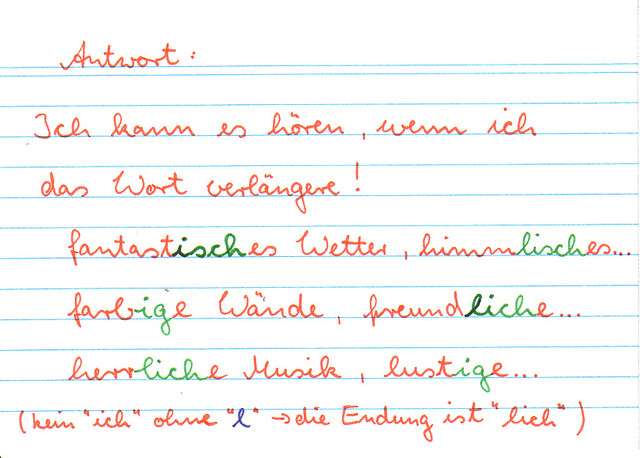 Antwort:
Ich kann es hören, wenn ich
das Wort verlängere!
fantastisches Wetter, himmlisches...
farbige Wände, freundliche...
herrliche Musik, lustige...
(kein "ich" ohne "l" → die Endung ist "lich")